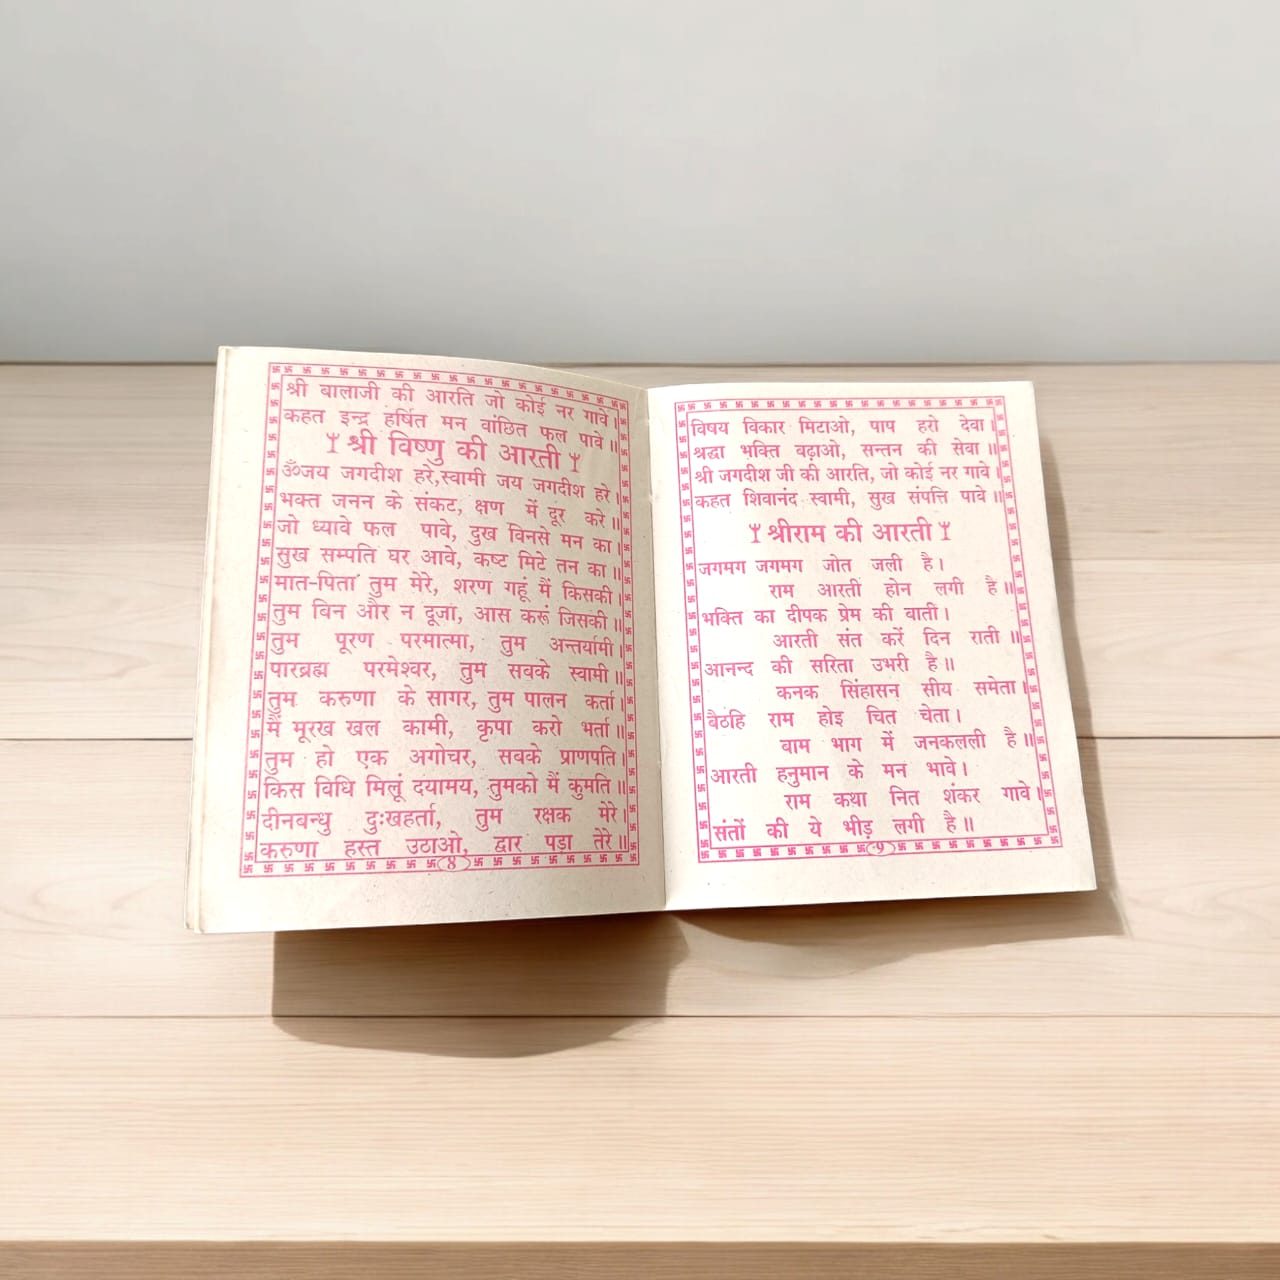 श्री बालाजी की आरति जो कोई नर गावे।
कहत इन्द्र हर्षित मन वांछित फल पावे॥
श्री विष्णु की आरती
ॐजय जगदीश हरे,स्वामी जय जगदीश हरे।
भक्त जनन के संकट, क्षण में दूर करे॥
जो ध्यावे फल पावे, दुख विनसे मन का।
सुख सम्पति घर आवे, कष्ट मिटे तन का॥
मात-पिता तुम मेरे, शरण गहूं मैं किसकी।
तुम विन और न दूजा, आस करूं जिसकी॥
तुम पूरण परमात्मा, तुम अन्तर्यामी।
पारब्रह्म परमेश्वर, तुम सबके स्वामी॥
तुम करुणा के सागर, तुम पालन कर्ता।
मैं मूरख खल कामी, कृपा करो भर्ता॥
तुम हो एक अगोचर, सबके प्राणपति।
किस विधि मिलूं दयामय, तुमको मैं कुमति॥
दीनबन्धु दुःखहर्ता, तुम रक्षक मेरे।
करुणा हस्त उठाओ, द्वार पड़ा तेरे॥
8
विषय विकार मिटाओ, पाप हरो देवा।
श्रद्धा भक्ति बढ़ाओ, सन्तन की सेवा॥
श्री जगदीश जी की आरति, जो कोई नर गावे।
कहत शिवानंद स्वामी, सुख संपत्ति पावे॥
श्रीराम की आरती
जगमग जगमग जोत जली है।
राम आरती होन लगी है॥
भक्ति का दीपक प्रेम की वाती।
आरती संत करें दिन राती॥
आनन्द की सरिता उभरी है॥
कनक सिंहासन सीय समेता।
बैठहि राम होइ चित चेता।
वाम भाग में जनकलली है॥
आरती हनुमान के मन भावे।
राम कथा नित शंकर गावे।
संतों की ये भीड़ लगी है॥
9